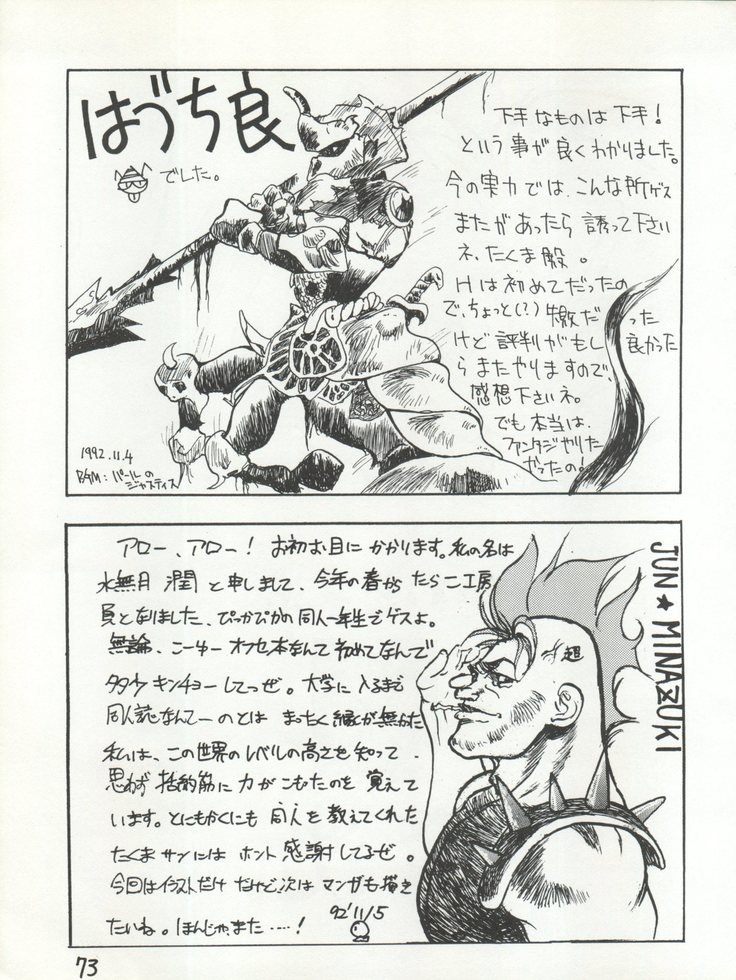 はづち良
でした。
下手なものは下手!
という事が良くわかりました。
今の実力では、こんな所ゲス
またがあったら 誘って下さい
ネ、たくま殿。
Hは初めてだったの
で、ちょっと(?) だった
けど 評判がもし良かった
らまたやりますので、
感想下さいネ。
でも本当は、
ファンタジやりた
かったの!
1992.11.4
BGM:パールの
ジャスティス
アロー、アロー! お初お目にかかります。私の名は
水無月 潤 と申しまして、今年の春から たらこ工房
員となりました、ぴっかぴかの同人一年生でゲスよ。
無論、こーゆー オフセ本なんて 初めてなんで
キンチョーしてっぜ。大学に入るまで
同人誌なんてーのとは まったく縁が無かった
私は、この世界のレベルの高さを知って、
思わず 括約筋に力がこもったのを 覚えて
います。とにもかくにも 同人を教えてくれた
たくまサンには ホント 感謝してるぜ。
今回はイラストだけ だけど次は マンガも描き
たいね。ほんじゃ、また……!
92'11/5
超
JUN★MINAZUKI
73